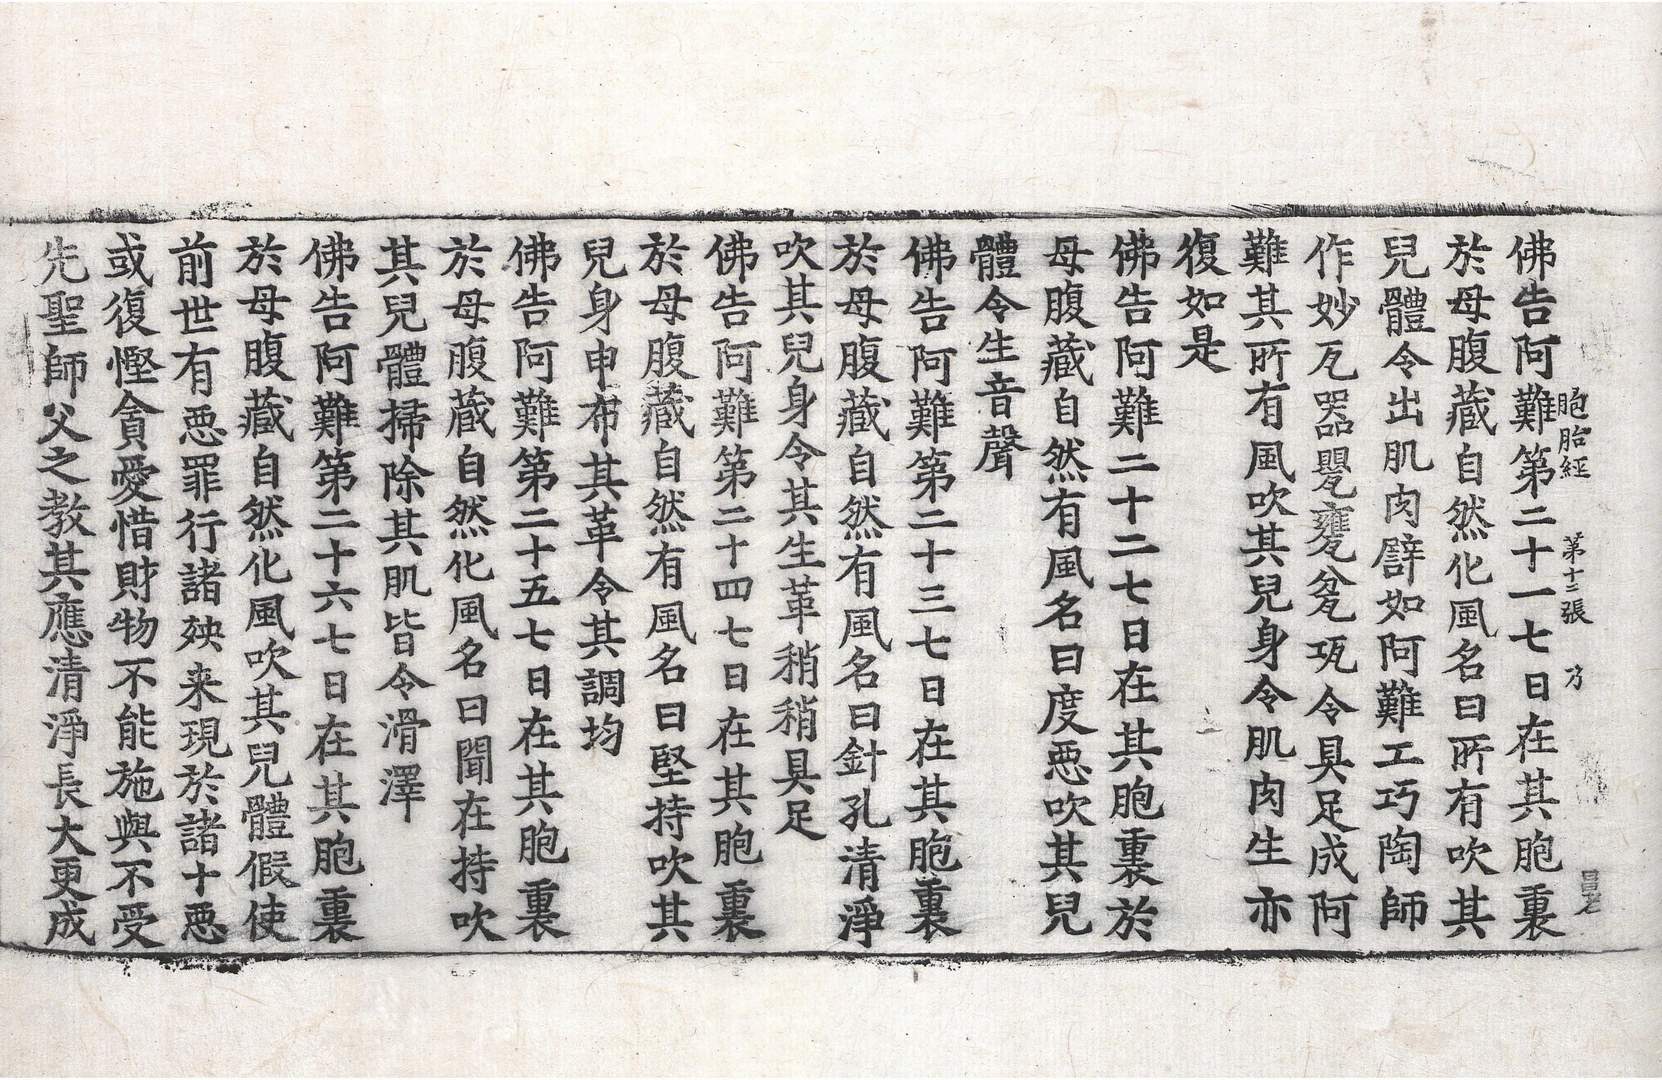 胞胎經 第十三張 乃
佛告阿難第二十一七日在其胞裏
於母腹藏自然化風名曰所有吹其
兒體令出肌肉譬如阿難工巧陶師
作妙瓦器甖甕瓫㼚令具足成阿
難其所有風吹其兒身令肌肉生亦
復如是
佛告阿難二十二七日在其胞裏於
母腹藏自然有風名曰度惡吹其兒
體令生音聲
佛告阿難第二十三七日在其胞裏
於母腹藏自然有風名曰針孔清淨
吹其兒身令其生革稍稍具足
佛告阿難第二十四七日在其胞裏
於母腹藏自然有風名曰堅持吹其
兒身申布其革令其調均
佛告阿難第二十五七日在其胞裏
於母腹藏自然化風名曰聞在持吹
其兒體掃除其肌皆令滑澤
佛告阿難第二十六七日在其胞裏
於母腹藏自然化風吹其兒體假使
前世有惡罪行諸殃来現於諸十惡
或復慳貪愛惜財物不能施與不受
先聖師父之教其應清淨長大更成